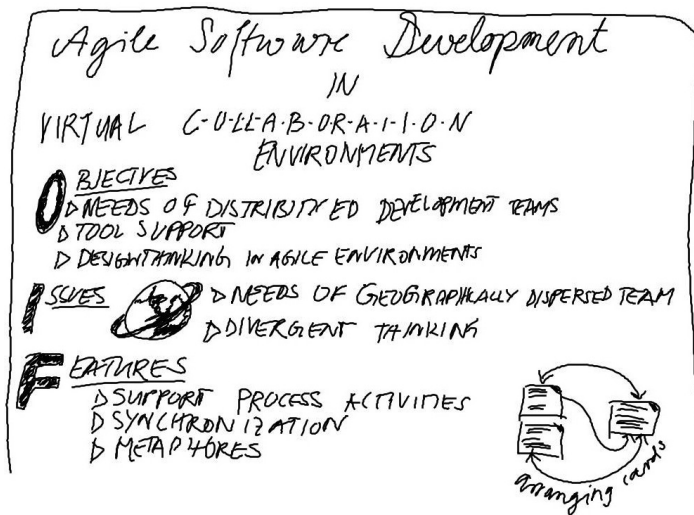 Agile Software Development
IN
VIRTUAL C-O-LL-A-B-OR-A-T-I-O-N
ENVIRONMENTS
OBJECTIVES
▷ NEEDS OF DISTRIBUTED DEVELOPMENT TEAMS
▷ TOOL SUPPORT
▷ DESIGNTHINKING IN AGILE ENVIRONMENTS
ISSUES
▷ NEEDS OF GEOGRAPHICALLY DISPERSED TEAM
▷ DIVERGENT THINKING
FEATURES
▷ SUPPORT PROCESS ACTIVITIES
▷ SYNCHRONIZATION
▷ METAPHORES
arranging cards